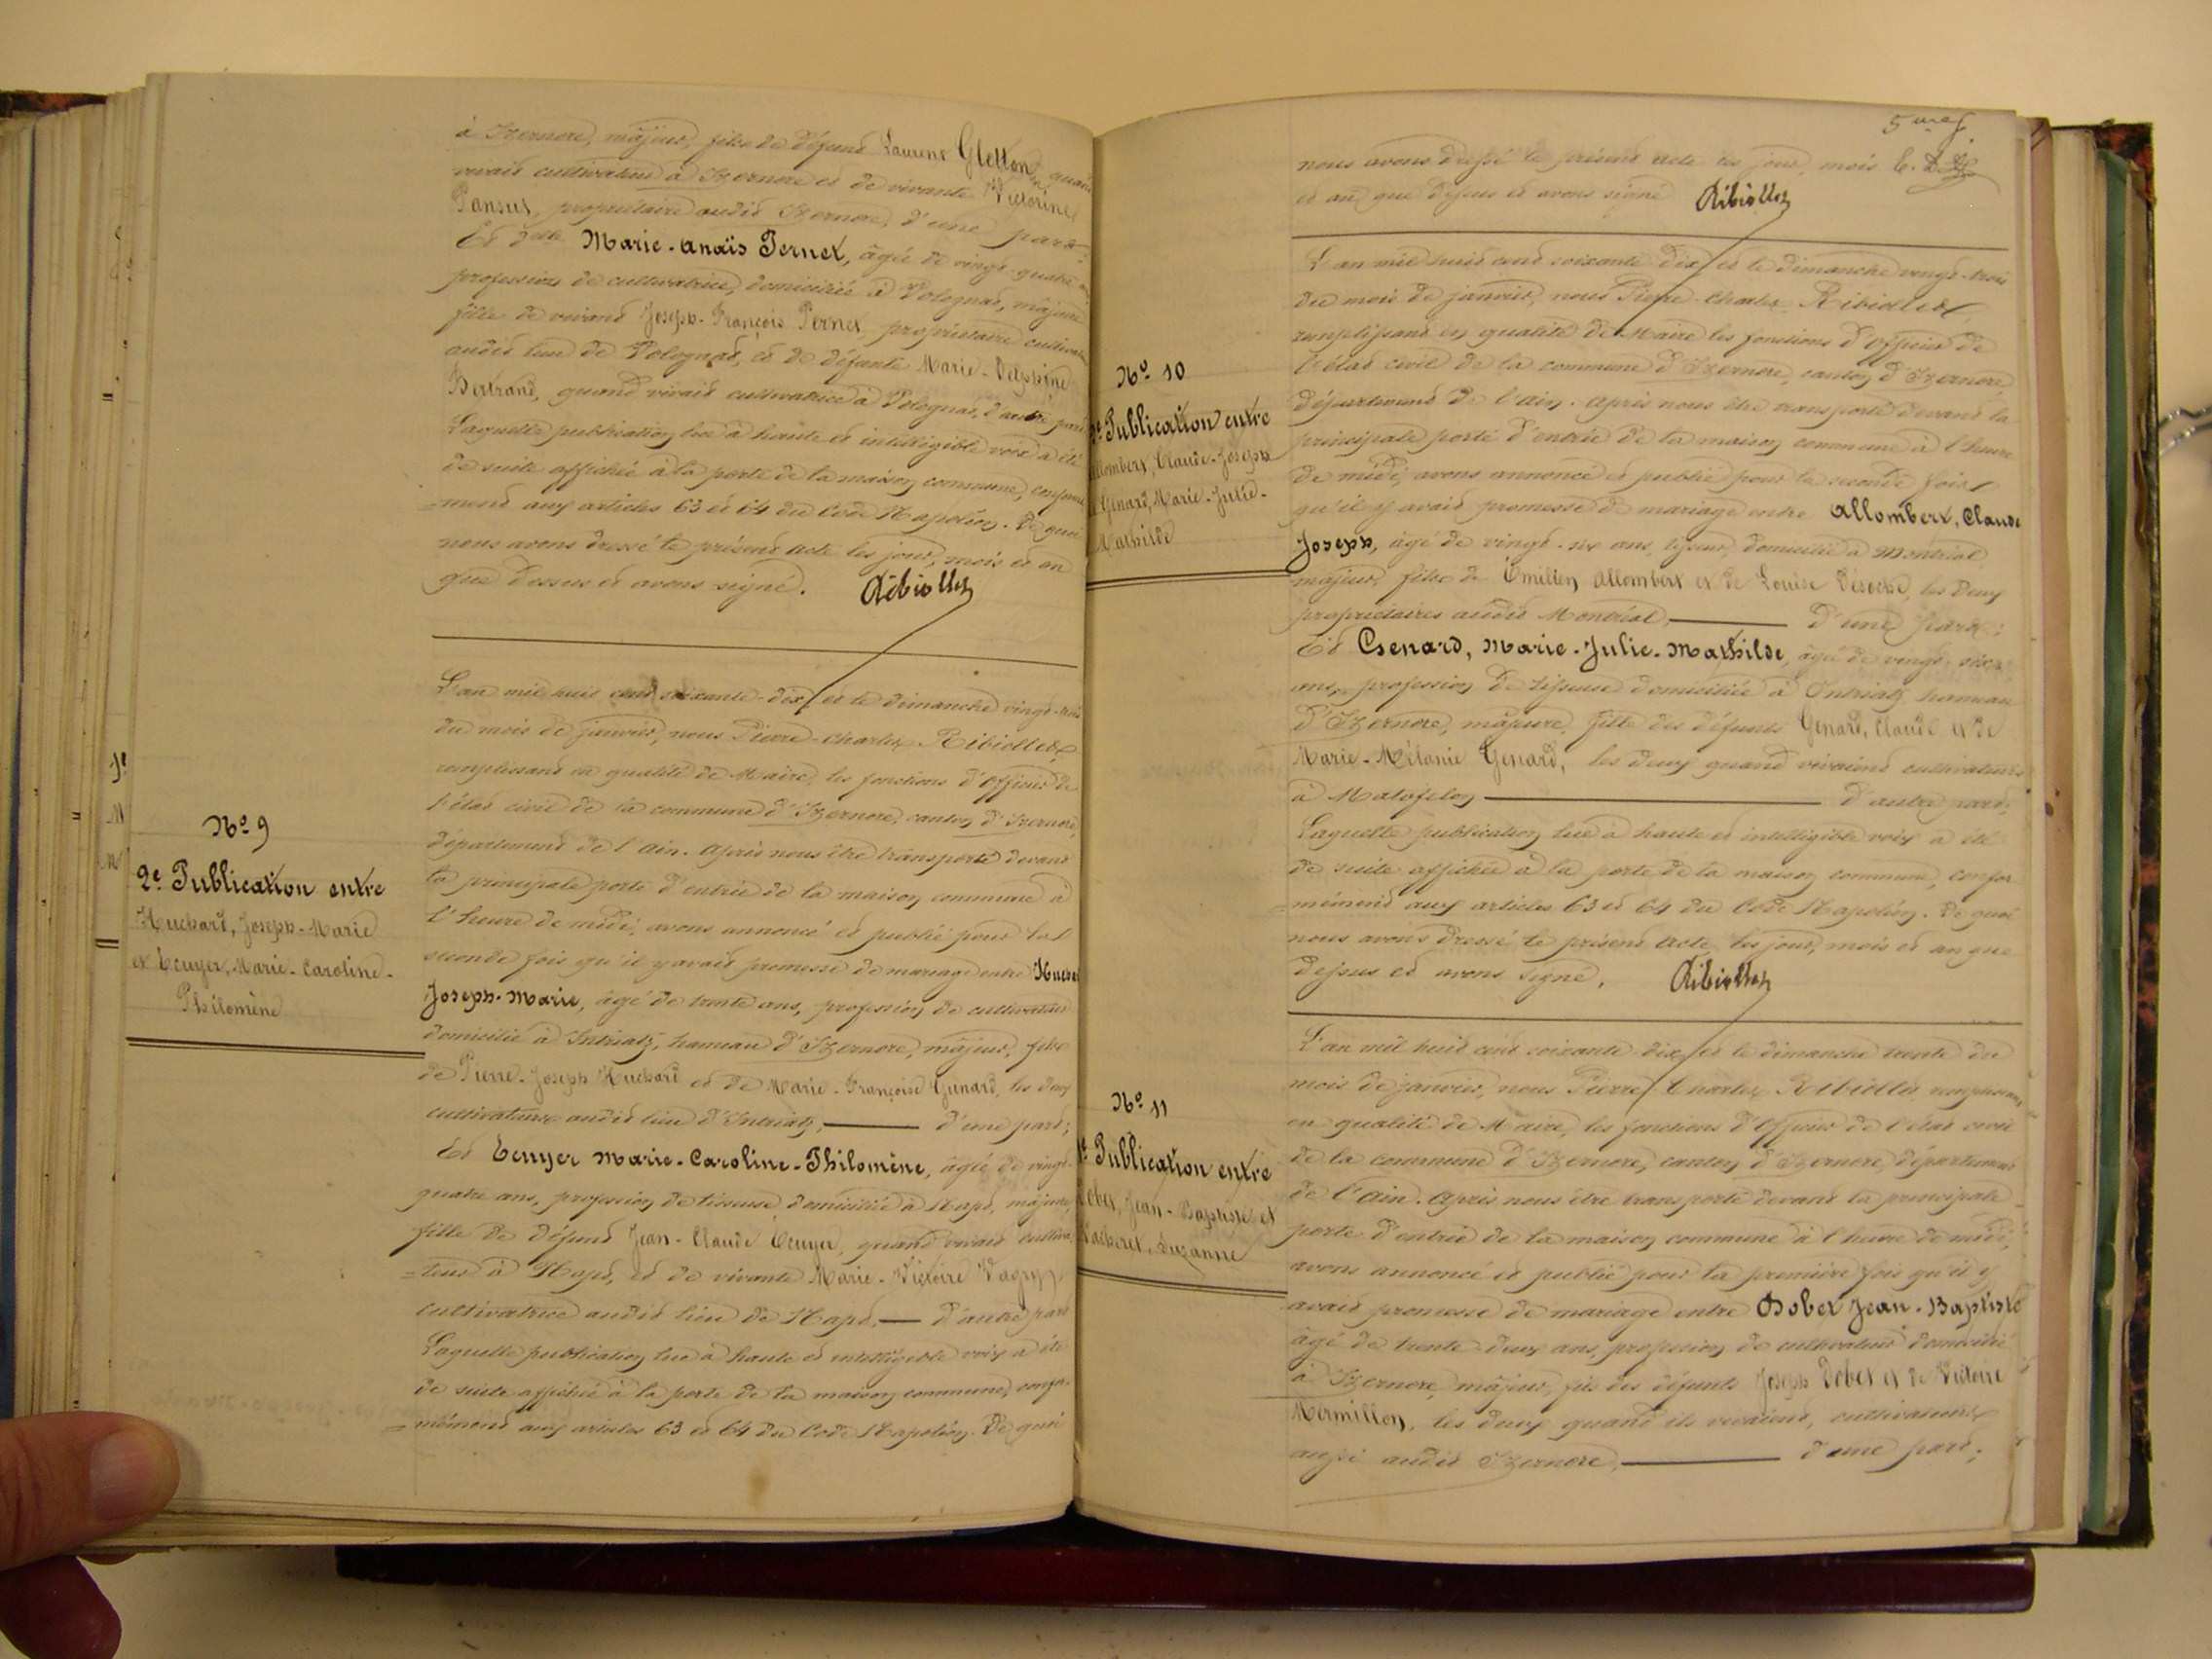 à Izernore, majeur, fils de défunt Laurent Gletton, quand
vivait cultivateur à Izernore et de vivante Victorine
Pansut, propriétaire audit Izernore, d'une part
Et Delle Marie-Anaïs Pernet, âgée de vingt-quatre
profession de cultivatrice, domiciliée à Volognat, majeure
fille de vivant Joseph-François Pernet, propriétaire cultivateur
audit lieu de Volognat, et de défunte Marie-Delphine
Bertrand, quand vivait cultivatrice à Volognat, d'autre part
Laquelle publication lue à haute et intelligible voix a été
de suite affichée à la porte de la maison commune, conformé
=ment aux articles 63 et 64 du Code Napoléon. De quoi
nous avons dressé le présent acte les jour, mois et an
que dessus et avons signé. Ribiollet
No 9
2e Publication entre
Huchard, Joseph-Marie
et Ecuyer, Marie-Caroline-
Philomène
L'an mil huit cent soixante-dix et le dimanche vingt-trois
du mois de janvier, nous Pierre-Charles Ribiollet
remplissant en qualité de Maire les fonctions d'Officier de
l'état civil de la commune d'Izernore, canton d'Izernore,
département de l'Ain. Après nous être transporté devant
la principale porte d'entrée de la maison commune à
l'heure de midi, avons annoncé et publié pour la
seconde fois qu'il y avait promesse de mariage entre
Joseph-Marie, âgé de trente ans, profession de cultivateur
domicilié à Intriatz, hameau d'Izernore, majeur, fils
de Pierre-Joseph Huchard et de Marie-Françoise Genard, les deux
cultivateurs audit lieu d'Intriatz, d'une part;
Et Ecuyer Marie-Caroline-Philomène, âgée de vingt-
quatre ans, profession de tisseuse, domiciliée à Napt, majeure,
fille de défunt Jean-Claude Ecuyer, quand vivait cultiva
=teur à Napt, et de vivante Marie-Victoire
cultivatrice audit lieu de Napt, d'autre part
Laquelle publication lue à haute et intelligible voix a été
de suite affichée à la porte de la maison commune, confor
=mément aux articles 63 et 64 du Code Napoléon. De quoi
5
nous avons dressé le présent acte les jour, mois
et an que dessus et avons signé Ribiollet
No 10
2e Publication entre
Allombert, Claude-Joseph
et Genard, Marie-Julie-
Mathilde
L'an mil huit cent soixante dix et le dimanche vingt-trois
du mois de janvier, nous Pierre-Charles Ribiollet
remplissant en qualité de Maire les fonctions d'Officier de
l'état civil de la commune d'Izernore, canton d'Izernore
département de l'Ain. Après nous être transporté devant la
principale porte d'entrée de la maison commune à l'heure
de midi, avons annoncé et publié pour la seconde fois
qu'il y avait promesse de mariage entre Allombert, Claude
Joseph, âgé de vingt-six ans, tisseur, domicilié à Montréal
majeur, fils de Emilien Allombert et de Louise les deux
propriétaires audit Montréal, d'une part;
Et Genard, Marie-Julie-Mathilde, âgée de vingt-six
ans, profession de tisseuse domiciliée à Intriatz hameau
d'Izernore, majeure, fille des défunts Genard, Claude et de
Marie-Mélanie Genard, les deux quand vivaient cultivateurs
à Matafelon d'autre part;
Laquelle publication lue à haute et intelligible voix a été
de suite affichée à la porte de la maison commune, confor
=mément aux articles 63 et 64 du Code Napoléon. De quoi
nous avons dressé le présent acte, les jour, mois et an que
dessus et avons signé. Ribiollet
No 11
1e Publication entre
Dobet, Jean-Baptiste et
Suzanne
L'an mil huit cent soixante dix et le dimanche trente du
mois de janvier, nous Pierre Charles Ribiollet remplissant
en qualité de Maire, les fonctions d'Officier de l'état civil
de la commune d'Izernore, canton d'Izernore, département
de l'Ain. Après nous être transporté devant la principale
porte d'entrée de la maison commune à l'heure de midi,
avons annoncé et publié pour la première fois qu'il y
avait promesse de mariage entre Dobet Jean-Baptiste
âgé de trente-deux ans, profession de cultivateur domicilié
à Izernore, majeur, fils des défunts Joseph Dobet et de Victoire
Mermillon, les deux quand ils vivaient, cultivateurs
aussi audit Izernore, d'une part;